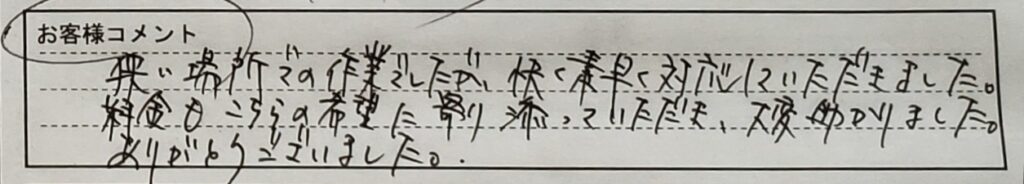 お客様コメント
狭い場所での作業でしたが、快く素早く対応していただきました。
料金もこちらの希望に寄り添っていただき、大変助かりました。
ありがとうございました。